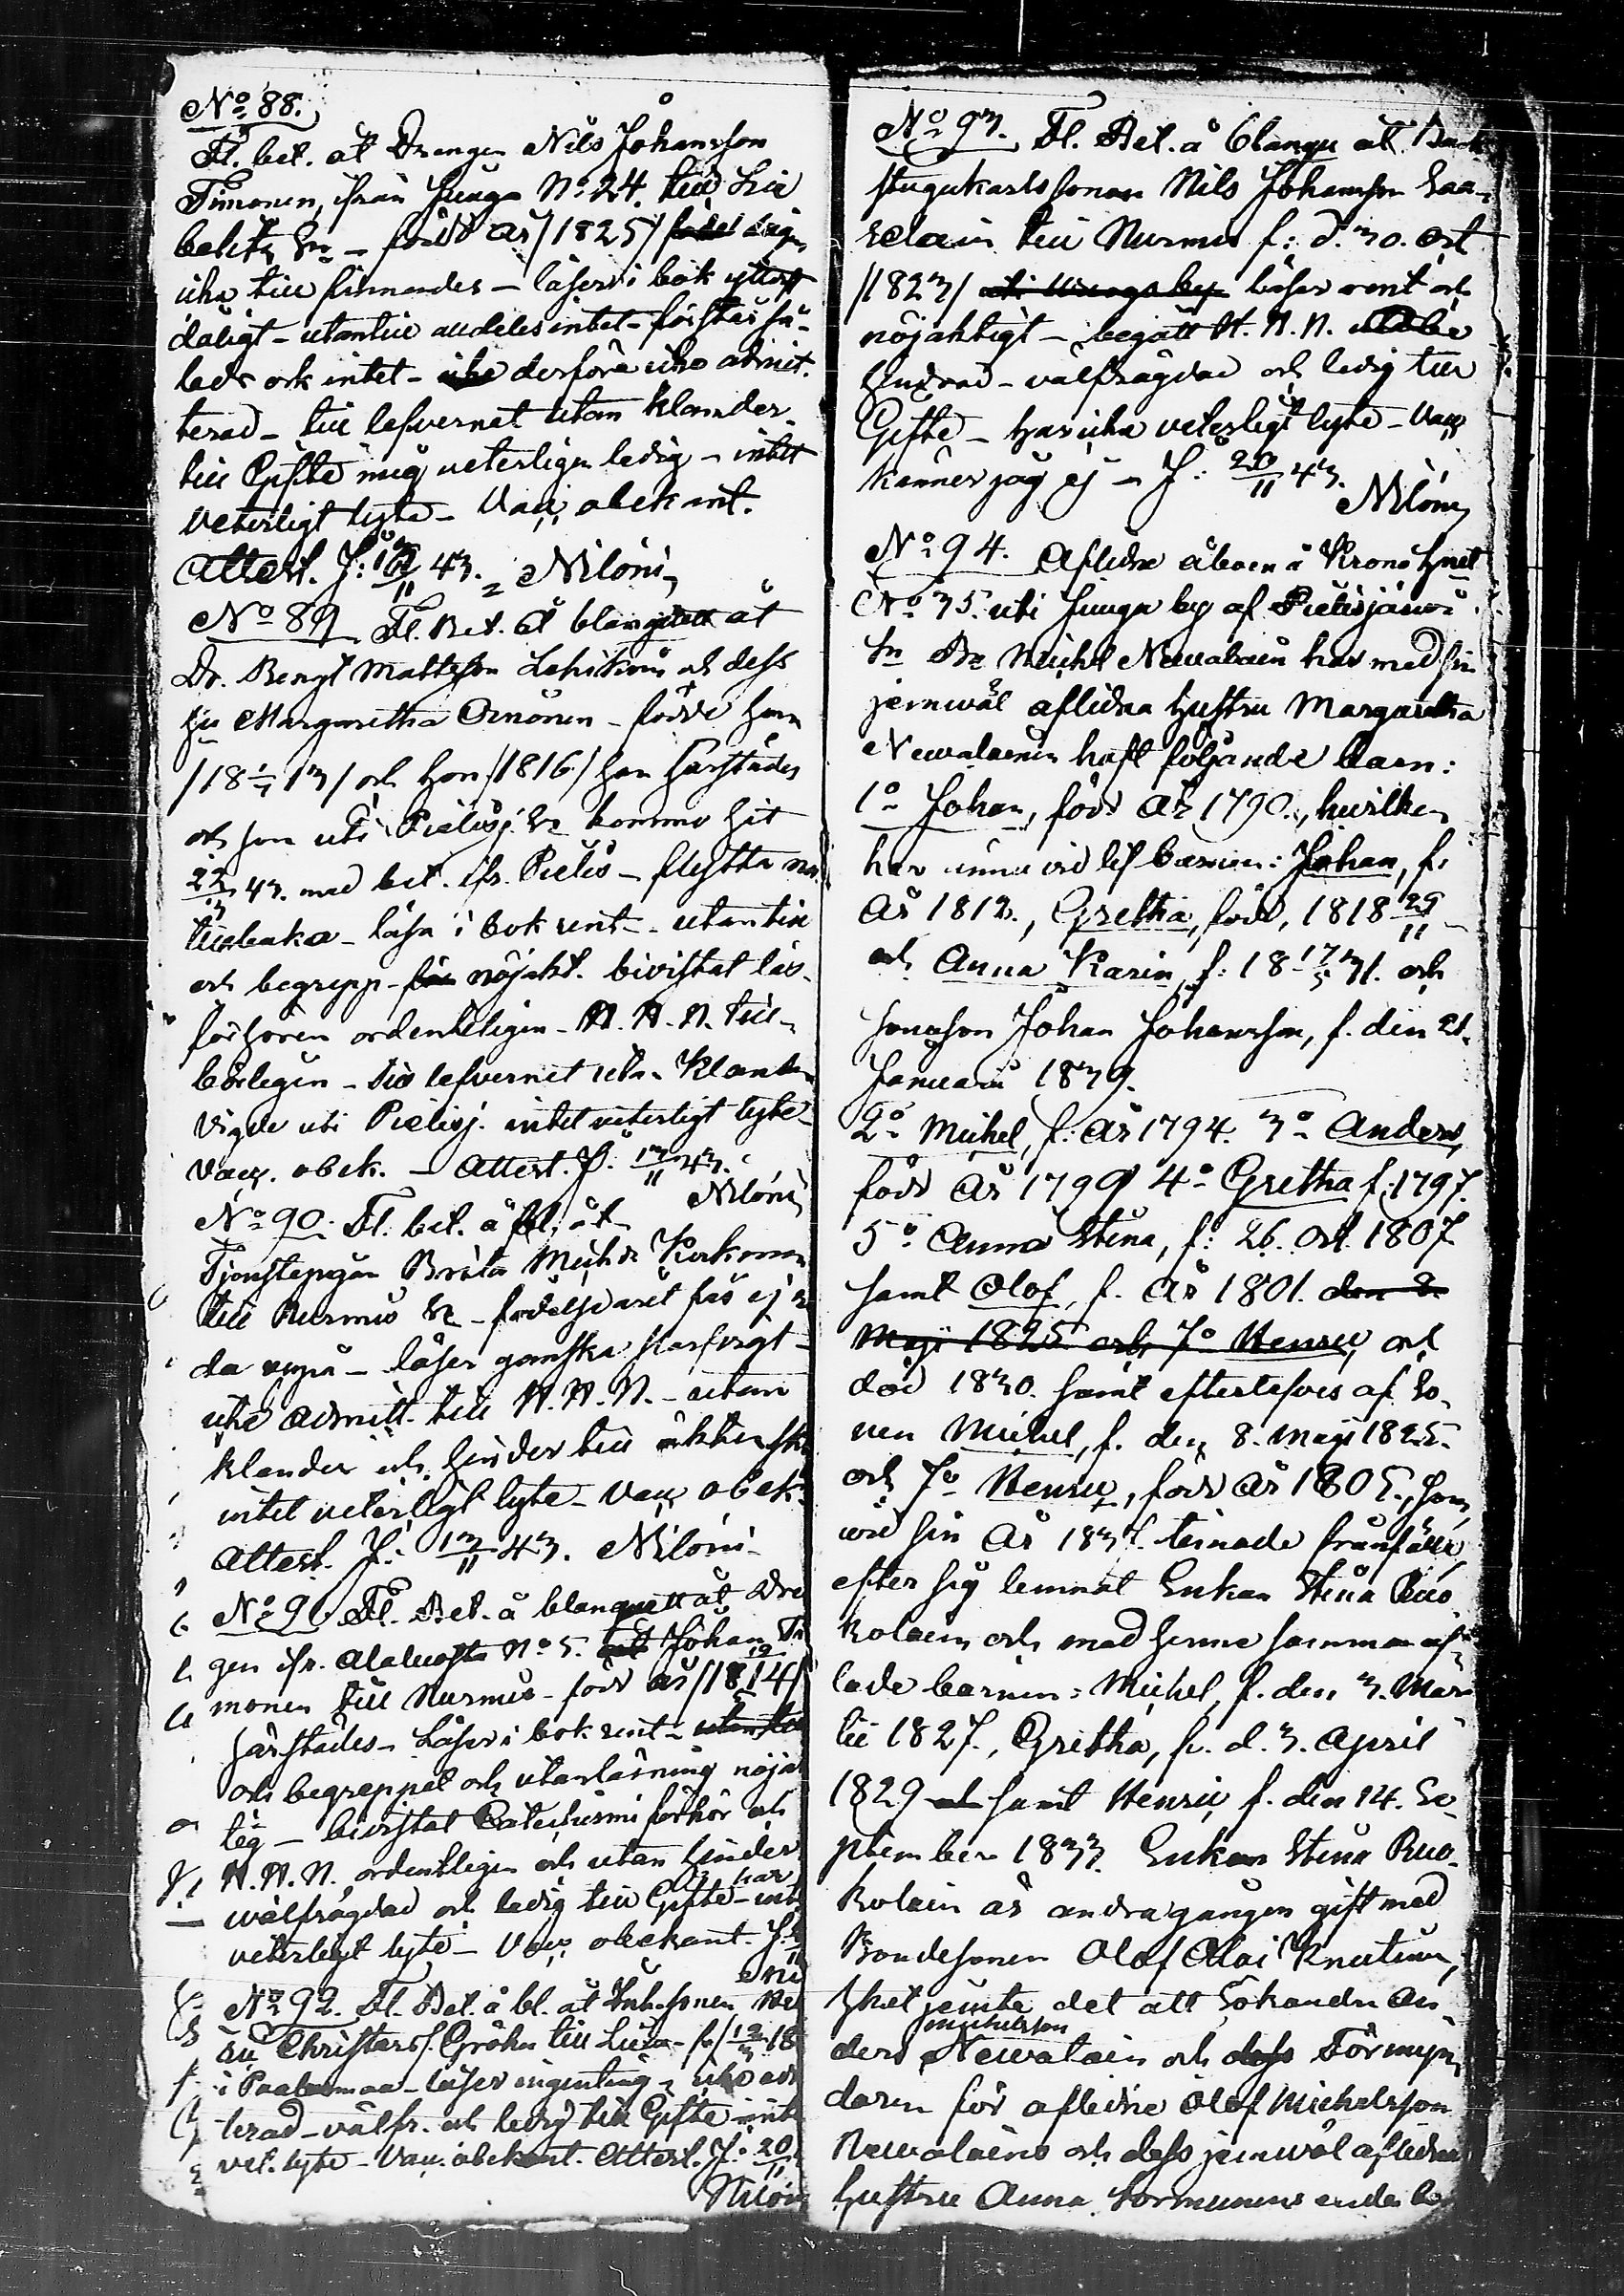 No 88.
Fl. bet. åt Drengen Nils Johansson
Timonen, ifrån Juuga No 24. till Lie
– född År /1825/
icke till finnandes – läser i bok ytterst
dåligt – utantill alldeles intet – förstår så-
leds ock intet – icke derföre icke admit-
terad – till lefvernet utan klander
till Gifte mig veterligen ledig – intet
veterligt lyte – Vac: obekant.
Attest. J: 43. Niloni
No 89 Fl. Bet. å blanquett åt
Dr. Bengt Mattsson Lahikoin och dess
hu Margaretha Ornonen – födde han
/18 1/7 13/ och hon /1816/ han härstädes
och hon uti Pielisj: Sn kommo hit
22/3 43. med bet. ifr. Pielis – flytta nu
tillbaka – läsa i bok rent – utantill
och begrepp – för nöjakt. bivistat läs-
förhören ordenteligen – H. H. N. till-
börligen – till lefvernet utan Klander
Vigde uti Pielisj. intet veterligt lyte –
Vac. obek. – Attest. J: 13/11 43.
Niloni
No 90. Fl. bet. å bl. åt
Tjenstepigan Brita Michsdr Korhonen
till Nurmis Sn – födelseåret fås ej
da repå – läser ganska slarfvigt –
icke admitt. till H. H. N. – utan
klander och hinder till äktensk
intet veterligt lyte – Vac obek.
Attest. J: 13/11 43. Niloni
No 91 Fl. Bet. å blanquett åt Dre
gen ifr. Alaluosta No 5. Johan Ti
monen till Nurmis – född År /1814/
härstädes – Läser i bok rent – utantill
och begreppet och utanläsning nöjak
lig – bivistat Catechismi förhör och
H. H. N. ordentligen och utan hinder
har
wälfrägdad och ledig till Gifte – int
veterligt lyte – Vac: obekant. J:
Nil
No 92. Fl. Bet. å bl. åt Inh.sonen Hen
ric Christerss. Gröhn till Libe – f. /12/3 18
i Paalasmaa – läser ingenting – icke ad
terad – välfr. och ledig till Gifte int
vet. lyte – Vac: obekant. Attest. J: 20/11
Niloni
No 93. Fl. Bet. å blanqu åt Back
stugukarls sonen Nils Johansson Saa-
relain till Nurmis f: d. 30. Oct
/1823/ uti Juuga by läser rent och
nöjaktigt – begått H. N. N. utan
hindrad – välfrägdad och ledig till
Gifte – har icke veterligt lyte – Vac
känner jag ej – J: 20/11 43.
Niloni
No 94. Aflidne åboen å Krono Hmt
No 35. uti Juuga by af Pielisjärvi
Sn Bn Michel Newalain har med sin
jemwäl aflidna hustru Margaretha
Newalainen haft följande barn:
1o Johan, född År 1790., hwilken
har ännu vid lif barnen: Johan, f.
År 1812., Gretha, född, 1818 29/11
och Anna Karin, f: 18 17/5 31. och
sonason Johan Johansson, f. den 21.
Januarii 1839.
2o Michel, f: År 1794. 3o Anders,
född År 1799 4o Gretha f: 1797.
5o Anna Stina, f: 26. Oct. 1807.
samt Olof, f. År 1801. den 8.
Maji 1825 och 7o Henric, och
död 1830. samt efterlefves af So-
nen Michel, f. den 8. Maji 1825.
och 7o Henric, född År 1805., som
wid sin År 1837. timade frånfälle
efter sig lemnat Enkan Stina Ruo
kolain och med henne samman af-
lade barnen: Michel, f. den 3. Mar
tii 1827., Gretha, f. d. 3. April
1829 och samt Henric, f. den 14. Se-
ptember 1833. Enkan Stina Ruo-
kolain är andra gången gift med
Bondesonen Olof Olai Knutinen,
jemte det att Sökanden An-
Michelsson
ders Newalain och dess Förmyn-
daren för aflidne Olof Michelsson
Newalains och dess jemwäl aflidna
hustru Anna Tormunens enda ba